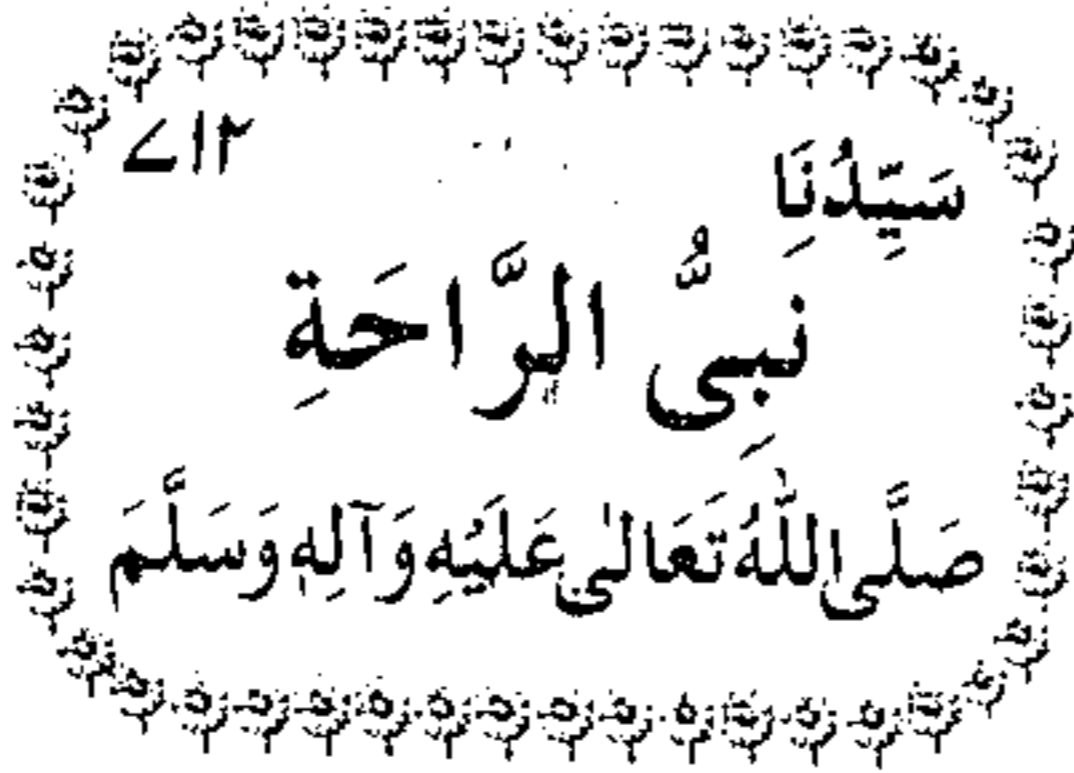 ۷۱۲
سَيِّدُنَا
نَبِيُّ الرَّاحَةِ
صَلَّى اللّٰهُ تَعَالٰى عَلَيْهِ وَآلِهٖ وَسَلَّمَ